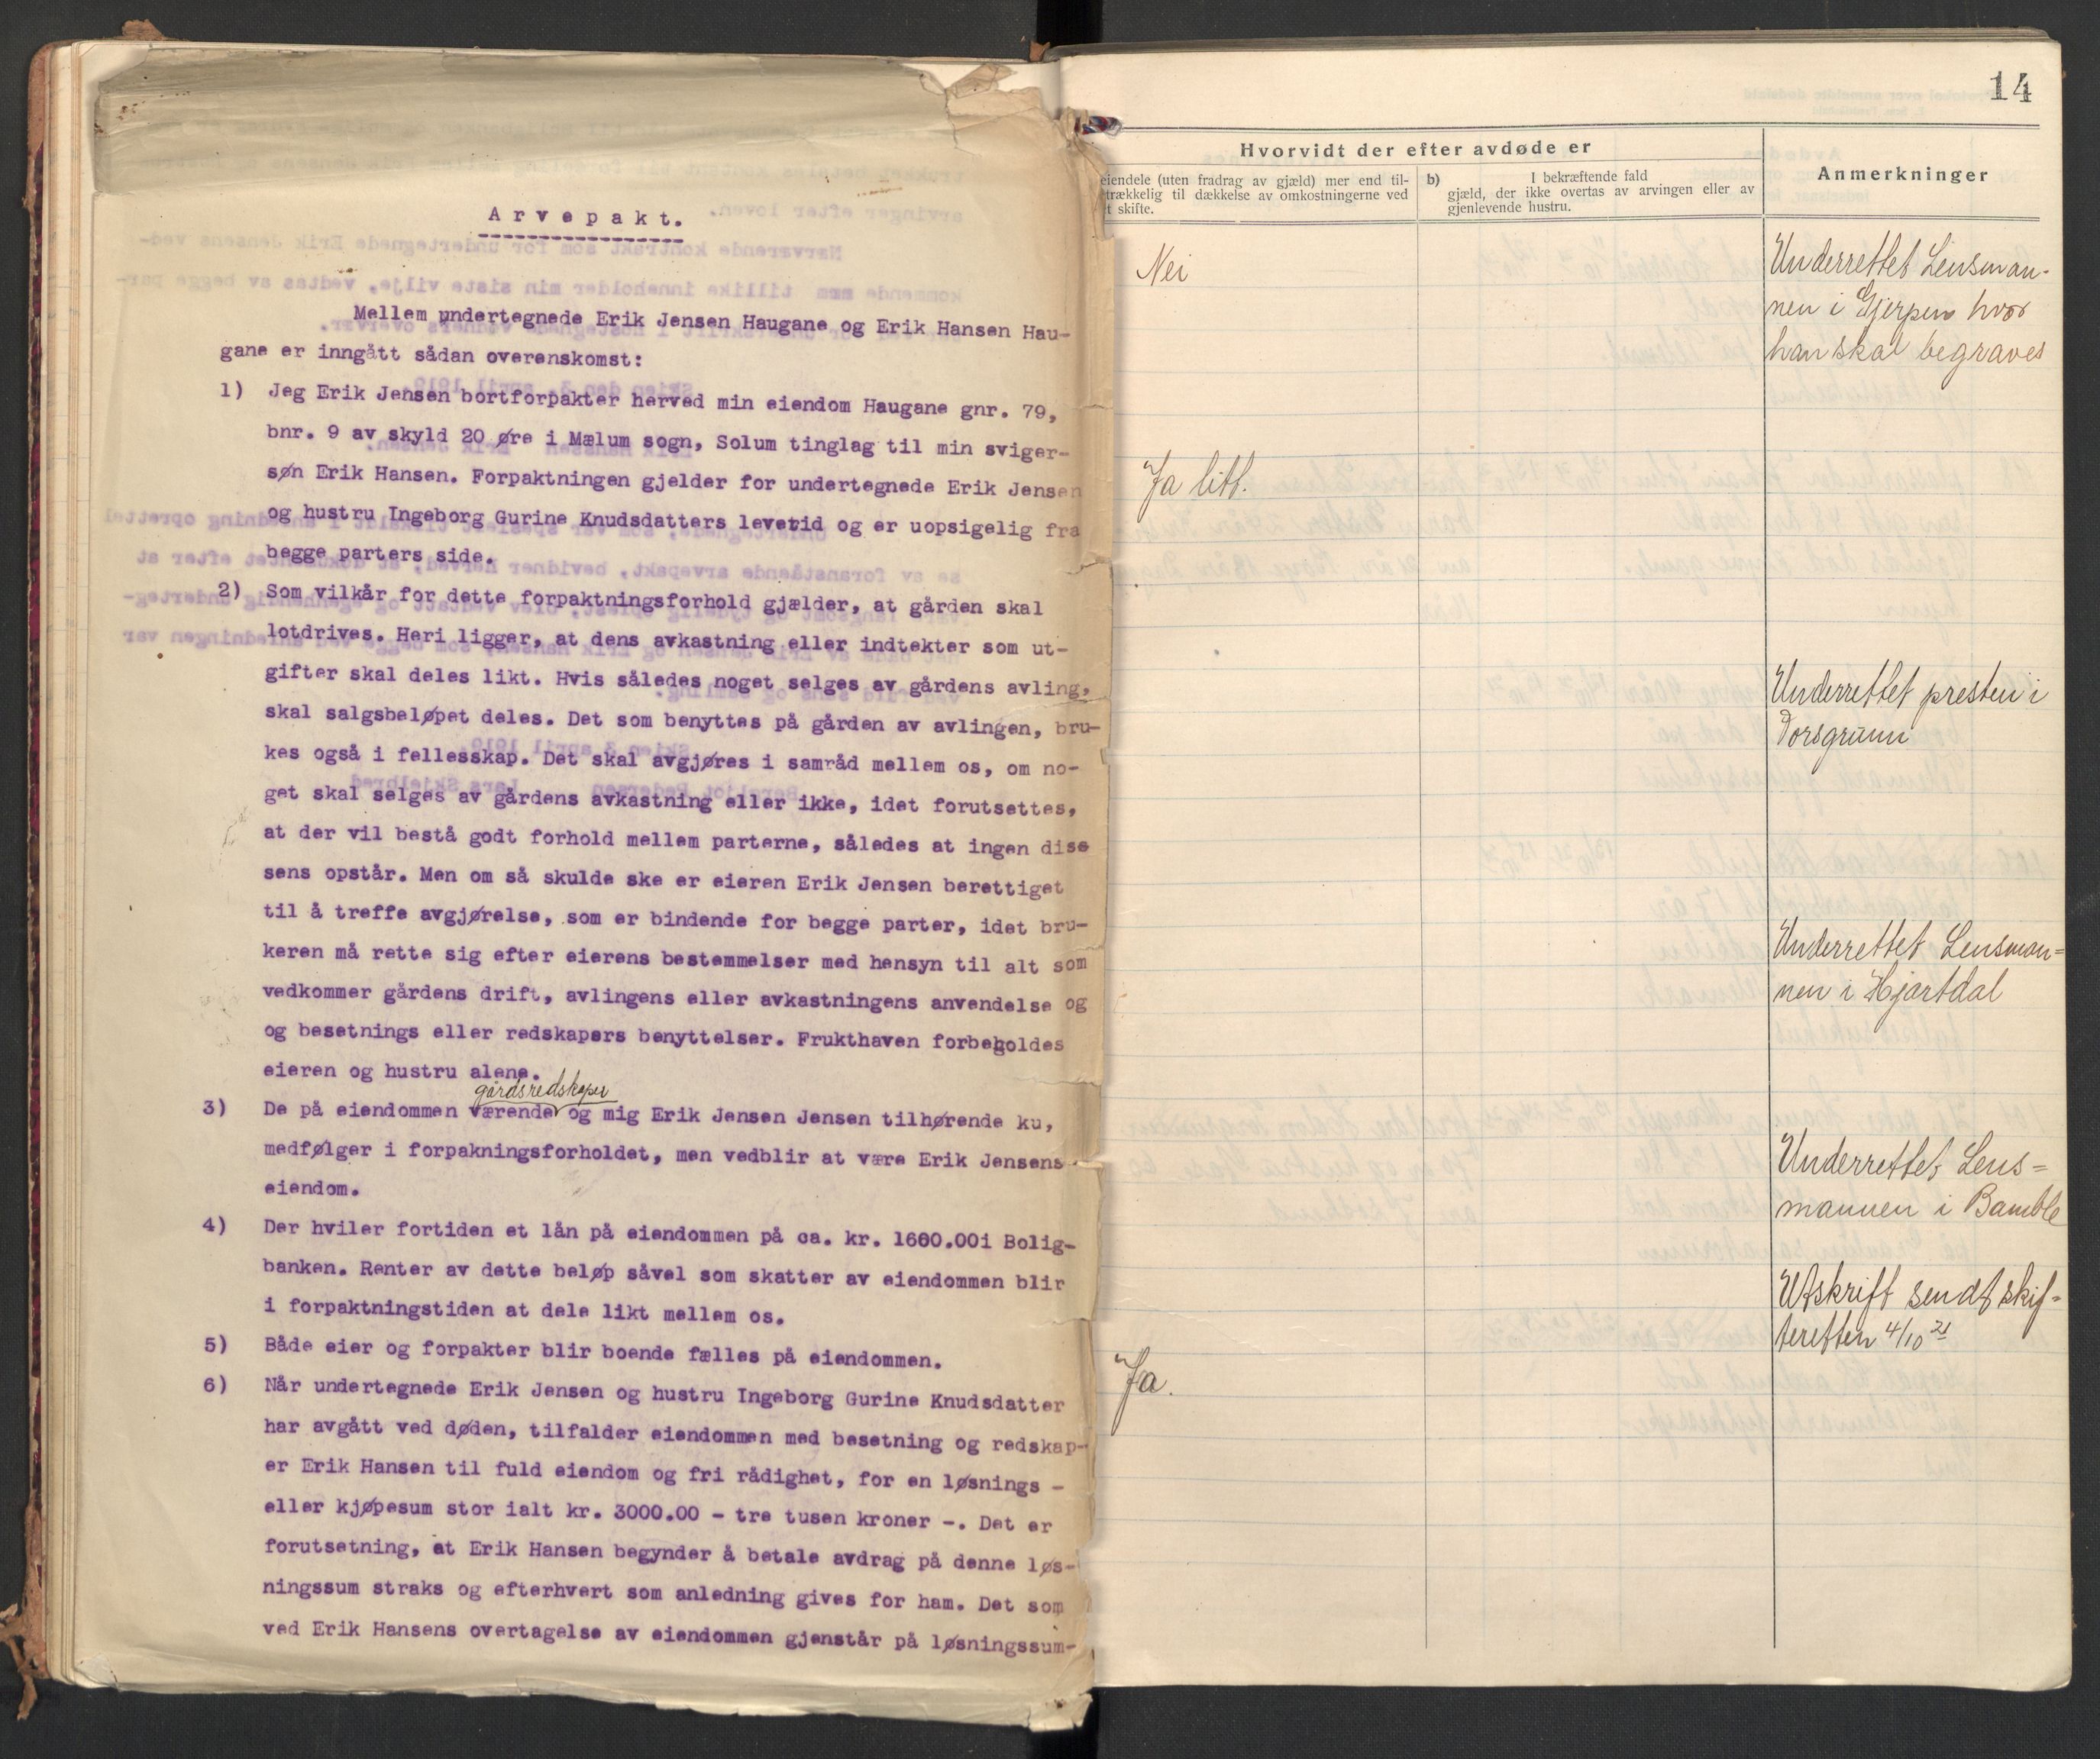 Arvepakt.
Mellem undertegnede Erik Jensen Haugane og Erik Hansen Hau-
gane er inngått sådan overenskomst:
1) Jeg Erik Jensen bortforpakter herved min eiendom Haugane gnr. 79,
bnr. 9 av skyld 20 øre i Mælum sogn, Solum tinglag til min sviger-
søn Erik Hansen. Forpaktningen gjelder for undertegnede Erik Jensen
og hustru Ingeborg Gurine Knudsdatters levetid og er uopsigelig fra
begge parters side.
2) Som vilkår for dette forpaktningsforhold gjælder, at gården skal
lotdrives. Heri ligger, at dens avkastning eller indtekter som ut-
gifter skal deles likt. Hvis således noget selges av gårdens avling,
skal salgsbeløpet deles. Det som benyttes på gården av avlingen, bru-
kes også i fellesskap. Det skal avgjøres i samråd mellem os, om no-
get skal selges av gårdens avkastning eller ikke, idet forutsettes,
at der vil bestå godt forhold mellem parterne, således at ingen diss
sens opstår. Men om så skulde ske er eieren Erik Jensen berettiget
til å treffe avgjørelse, som er bindende for begge parter, idet bru-
keren må rette sig efter eierens bestemmelser med hensyn til alt som
vedkommer gårdens drift, avlingens eller avkastningens anvendelse og
og besetnings eller redskapers benyttelser. Frukthaven forbeholdes
eieren og hustru alene.
gårdsredskaper
3) De på eiendommen værende og mig Erik Jensen Jensen tilhørende ku,
medfølger i forpakningsforholdet, men vedblir at være Erik Jensens
eiendom.
4) Der hviler fortiden et lån på eiendommen på ca. kr. 1600.00i Bolig-
banken. Renter av dette beløp såvel som skatter av eiendommen blir
i forpaktningstiden at dele likt mellem os.
5) Både eier og forpakter blir boende fælles på eiendommen.
6) Når undertegnede Erik Jensen og hustru Ingeborg Gurine Knudsdatter
har avgått ved døden, tilfalder eiendommen med besetning og redskap-
er Erik Hansen til fuld eiendom og fri rådighet, for en løsnings -
eller kjøpesum stor ialt kr. 3000.00 - tre tusen kroner -. Det er
forutsetning, at Erik Hansen begynder å betale avdrag på denne løs-
ningssum straks og efterhvert som anledning gives for ham. Det som
ved Erik Hansens overtagelse av eiendommen gjenstår på løsningssum-
14
Hvorvidt der efter avdøde er
eiendele (uten fradrag av gjæld) mer end til-
trækkelig til dækkelse av omkostningerne ved
t skifte.
b) I bekræftende fald
gjæld, der ikke overtas av arvingen eller av
gjenlevende hustru.
Anmerkninger
Nei
Underrettet Lensman-
nen i Gjerpen hvor
han skal begraves
Ja litt.
Underrettet presten i
Porsgrunn
Underrettet Lensman=
nen i Hjartdal
Underrettet Lens=
mannen i Bamble
Utskrift sendt skif-
teretten 4/10 21
Ja.